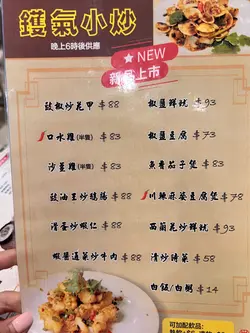 鑊氣小炒
晚上6時後供應
★NEW
新品上市
豉椒炒花甲 $88
椒鹽鮮魷 $93
口水雞(半隻) $83
椒鹽豆腐 $73
沙薑雞(半隻) $83
魚香茄子煲 $83
豉油王炒鵝腸 $88
川辣麻婆豆腐煲 $78
滑蛋炒蝦仁 $88
西蘭花炒鮮魷 $93
蝦醬通菜炒牛肉 $88
清炒時菜 $58
白飯/白粥 $14
可加配飲品: